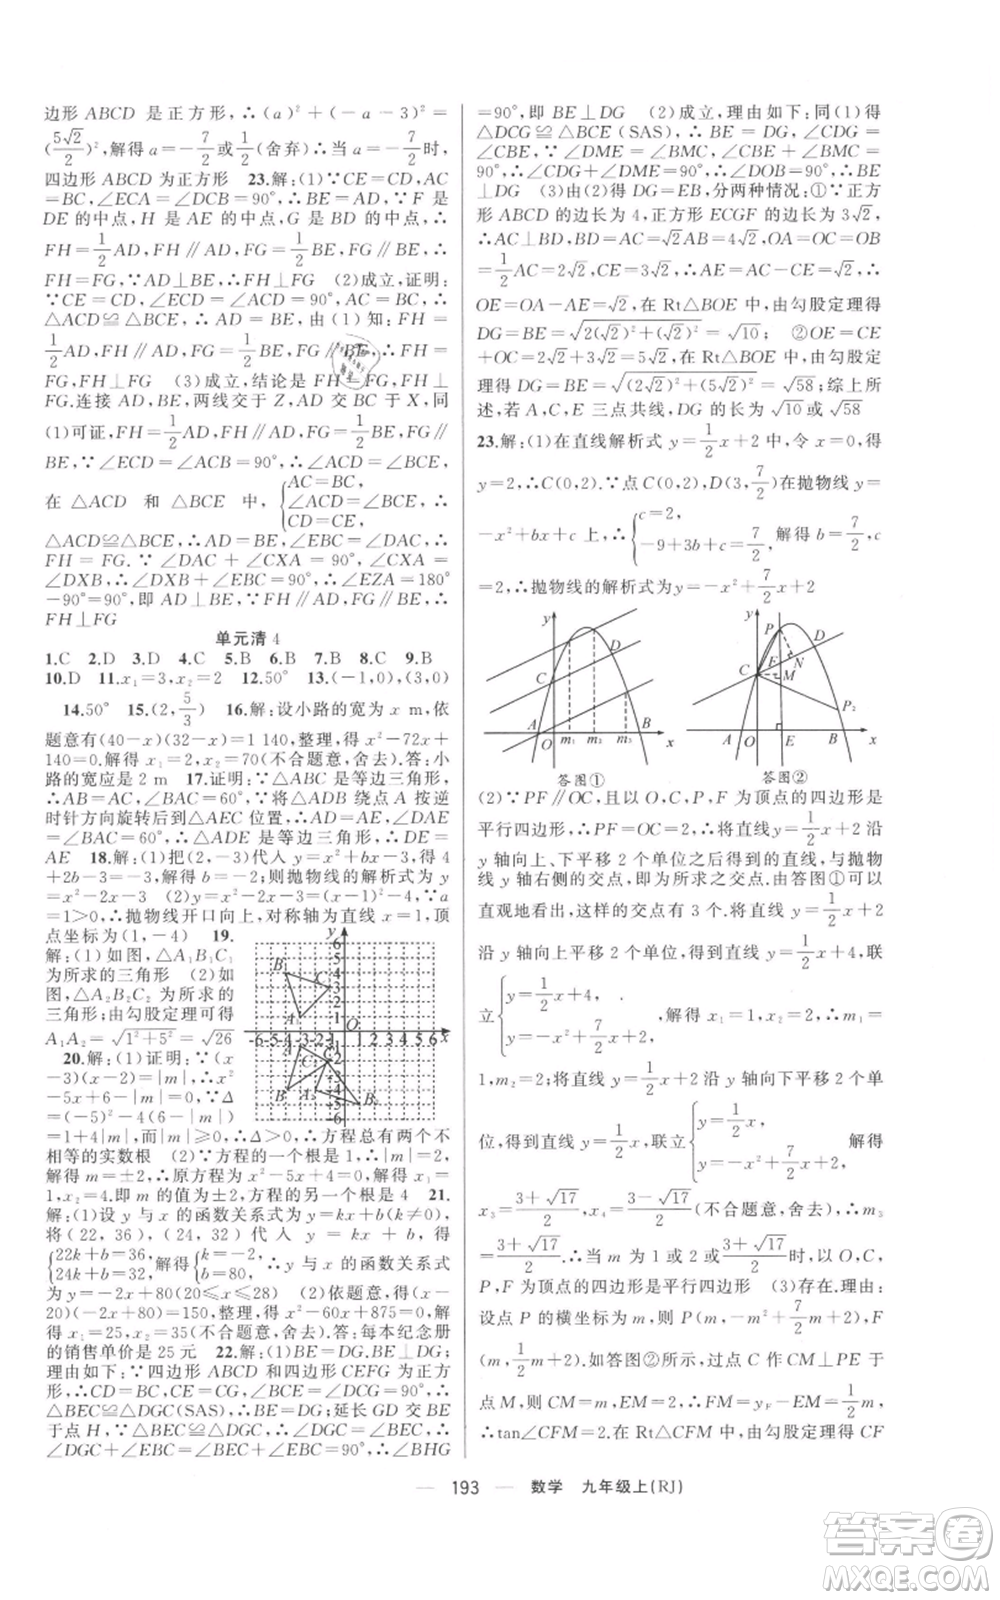 边形 ABCD 是正方形,∴(a)²+(-a-3)²=
(5√2/2)²,解得 a=-7/2或1/2(舍弃)∴当 a=-7/2时,
四边形 ABCD 为正方形 23.解:(1)∵CE=CD,AC
=BC,∠ECA=∠DCB=90°,∴BE=AD,∵F 是
DE 的中点,H 是 AE 的中点,G 是 BD 的中点,∴
FH=1/2AD,FH∥AD,FG=1/2BE,FG∥BE,∴
FH=FG,∵AD⊥BE,∴FH⊥FG (2)成立,证明:
∵CE=CD,∠ECD=∠ACD=90°,AC=BC,∴
△ACD≌△BCE,∴AD=BE,由(1)知:FH=
1/2AD,FH∥AD,FG=1/2BE,FG∥BE,∴FH=
FG,FH⊥FG (3)成立,结论是 FH=FG,FH⊥
FG.连接 AD,BE,两线交于 Z,AD 交 BC 于 X,同
(1)可证,FH=1/2AD,FH∥AD,FG=1/2BE,FG∥
BE,∵∠ECD=∠ACB=90°,∴∠ACD=∠BCE,
在 △ACD 和 △BCE 中,{AC=BC, ∠ACD=∠BCE, CD=CE,
△ACD≌△BCE,∴AD=BE,∠EBC=∠DAC,∴
FH=FG.∵∠DAC+∠CXA=90°,∠CXA=
∠DXB,∴∠DXB+∠EBC=90°,∴∠EZA=180°
-90°=90°,即 AD⊥BE,∵FH∥AD,FG∥BE,∴
FH⊥FG
单元清 4
1.C 2.D 3.D 4.C 5.B 6.B 7.B 8.C 9.B
10.D 11.x₁=3,x₂=2 12.50° 13.(-1,0),(3,0)
14.50° 15.(2,5/3) 16.解:设小路的宽为 x m,依
题意有(40-x)(32-x)=1 140,整理,得 x²-72x+
140=0.解得 x₁=2,x₂=70(不合题意,舍去).答:小
路的宽应是 2 m 17.证明:∵△ABC 是等边三角形,
∴AB=AC,∠BAC=60°,∵△ADB 绕点 A 按逆
时针方向旋转后到△AEC 位置,∴AD=AE,∠DAE
=∠BAC=60°,∴△ADE 是等边三角形,∴DE=
AE 18.解:(1)把(2,-3)代入 y=x²+bx-3,得 4
+2b-3=-3,解得 b=-2;则抛物线的解析式为 y
=x²-2x-3 (2)y=x²-2x-3=(x-1)²-4,a=
1>0,∴抛物线开口向上,对称轴为直线 x=1,顶
点坐标为(1,-4) 19.
解:(1)如图,△A₁B₁C₁
为所求的三角形 (2)如
图,△A₂B₂C₂ 为所求的
三角形;由勾股定理可得
A₁A₂=√1²+5²=√26
20.解:(1)证明:∵(x
-3)(x-2)=|m|,∴x²
-5x+6-|m|=0,∵Δ
=(-5)²-4(6-|m|)
=1+4|m|,而|m|≥0,∴Δ>0,∴方程总有两个不
相等的实数根 (2)∵方程的一个根是 1,∴|m|=2,
解得 m=±2,∴原方程为 x²-5x+4=0,解得 x₁=1,x₂
=4.即 m 的值为±2,方程的另一个根是 4 21.
解:(1)设 y 与 x 的函数关系式为 y=kx+b(k≠0),
将(22,36),(24,32)代入 y=kx+b,得
{22k+b=36, 24k+b=32,解得{k=-2, b=80,∴y 与 x 的函数关系式
为 y=-2x+80(20≤x≤28) (2)依题意,得(x-
20)(-2x+80)=150,整理,得 x²-60x+875=0,解
得 x₁=25,x₂=35(不合题意,舍去).答:每本纪念册
的销售单价是 25 元 22.解:(1)BE=DG,BE⊥DG;
理由如下:∵四边形 ABCD 和四边形 CEFG 为正方
形,∴CD=BC,CE=CG,∠BCE=∠DCG=90°,
∴△BEC≌△DGC(SAS),∴BE=DG;延长 GD 交 BE
于点 H,∵△BEC≌△DGC,∴∠DGC=∠BEC,∴
∠DGC+∠EBC=∠BEC+∠EBC=90°,∴∠BHG
=90°,即 BE⊥DG (2)成立,理由如下:同(1)得
△DCG≌△BCE(SAS),∴BE=DG,∠CDG=
∠CBE,∵∠DME=∠BMC,∠CBE+∠BMC=
90°,∴∠CDG+∠DME=90°,∴∠DOB=90°,∴BE
⊥DG (3)由(2)得 DG=EB,分两种情况:①∵正方
形 ABCD 的边长为 4,正方形 ECGF 的边长为 3√2,
∴AC⊥BD,AC=BD=√2AB=4√2,OA=OC=OB
=1/2AC=2√2,AE=AC-CE=4√2-3√2=√2,∴
OE=OA-AE=√2,在 Rt△BOE 中,由勾股定理得
DG=BE=√(2√2)²+(√2)²=√10; ②OE=CE
+OC=2√2+3√2=5√2,在 Rt△BOE 中,由勾股定
理得 DG=BE=√(2√2)²+(5√2)²=√58;综上所
述,若 A,C,E 三点共线,DG 的长为√10或√58
23.解:(1)在直线解析式 y=1/2x+2 中,令 x=0,得
y=2,∴C(0,2).∵点 C(0,2),D(3,7/2)在抛物线 y=
-x²+bx+c 上,∴{c=2, -9+3b+c=7/2,解得 b=7/2,c
=2,∴抛物线的解析式为 y=-x²+7/2x+2
答图① 答图②
(2)∵PF∥OC,且以 O,C,P,F 为顶点的四边形是
平行四边形,∴PF=OC=2,∴将直线 y=1/2x+2 沿
y 轴向上、下平移 2 个单位之后得到的直线,与抛物
线 y 轴右侧的交点,即为所求之交点.由答图①可以
直观地看出,这样的交点有 3 个.将直线 y=1/2x+2
沿 y 轴向上平移 2 个单位,得到直线 y=1/2x+4,联
立{y=1/2x+4, y=-x²+7/2x+2,解得 x₁=1,x₂=2,∴m₁=
1,m₂=2;将直线 y=1/2x+2 沿 y 轴向下平移 2 个单
位,得到直线 y=1/2x,联立{y=1/2x, y=-x²+7/2x+2,解得
x₃=(3+√17)/2,x₄=(3-√17)/2(不合题意,舍去),∴m₃
=(3+√17)/2.∴当 m 为 1 或 2 或(3+√17)/2时,以 O,C,
P,F 为顶点的四边形是平行四边形 (3)存在.理由:
设点 P 的横坐标为 m,则 P(m,-m²+7/2m+2),F
(m,1/2m+2).如答图②所示,过点 C 作 CM⊥PE 于
点 M,则 CM=m,EM=2,∴FM=y_F-EM=1/2m,
∴tan∠CFM=2.在 Rt△CFM 中,由勾股定理得 CF
193 数学 九年级上(RJ)
答案卷
MXQE.COM